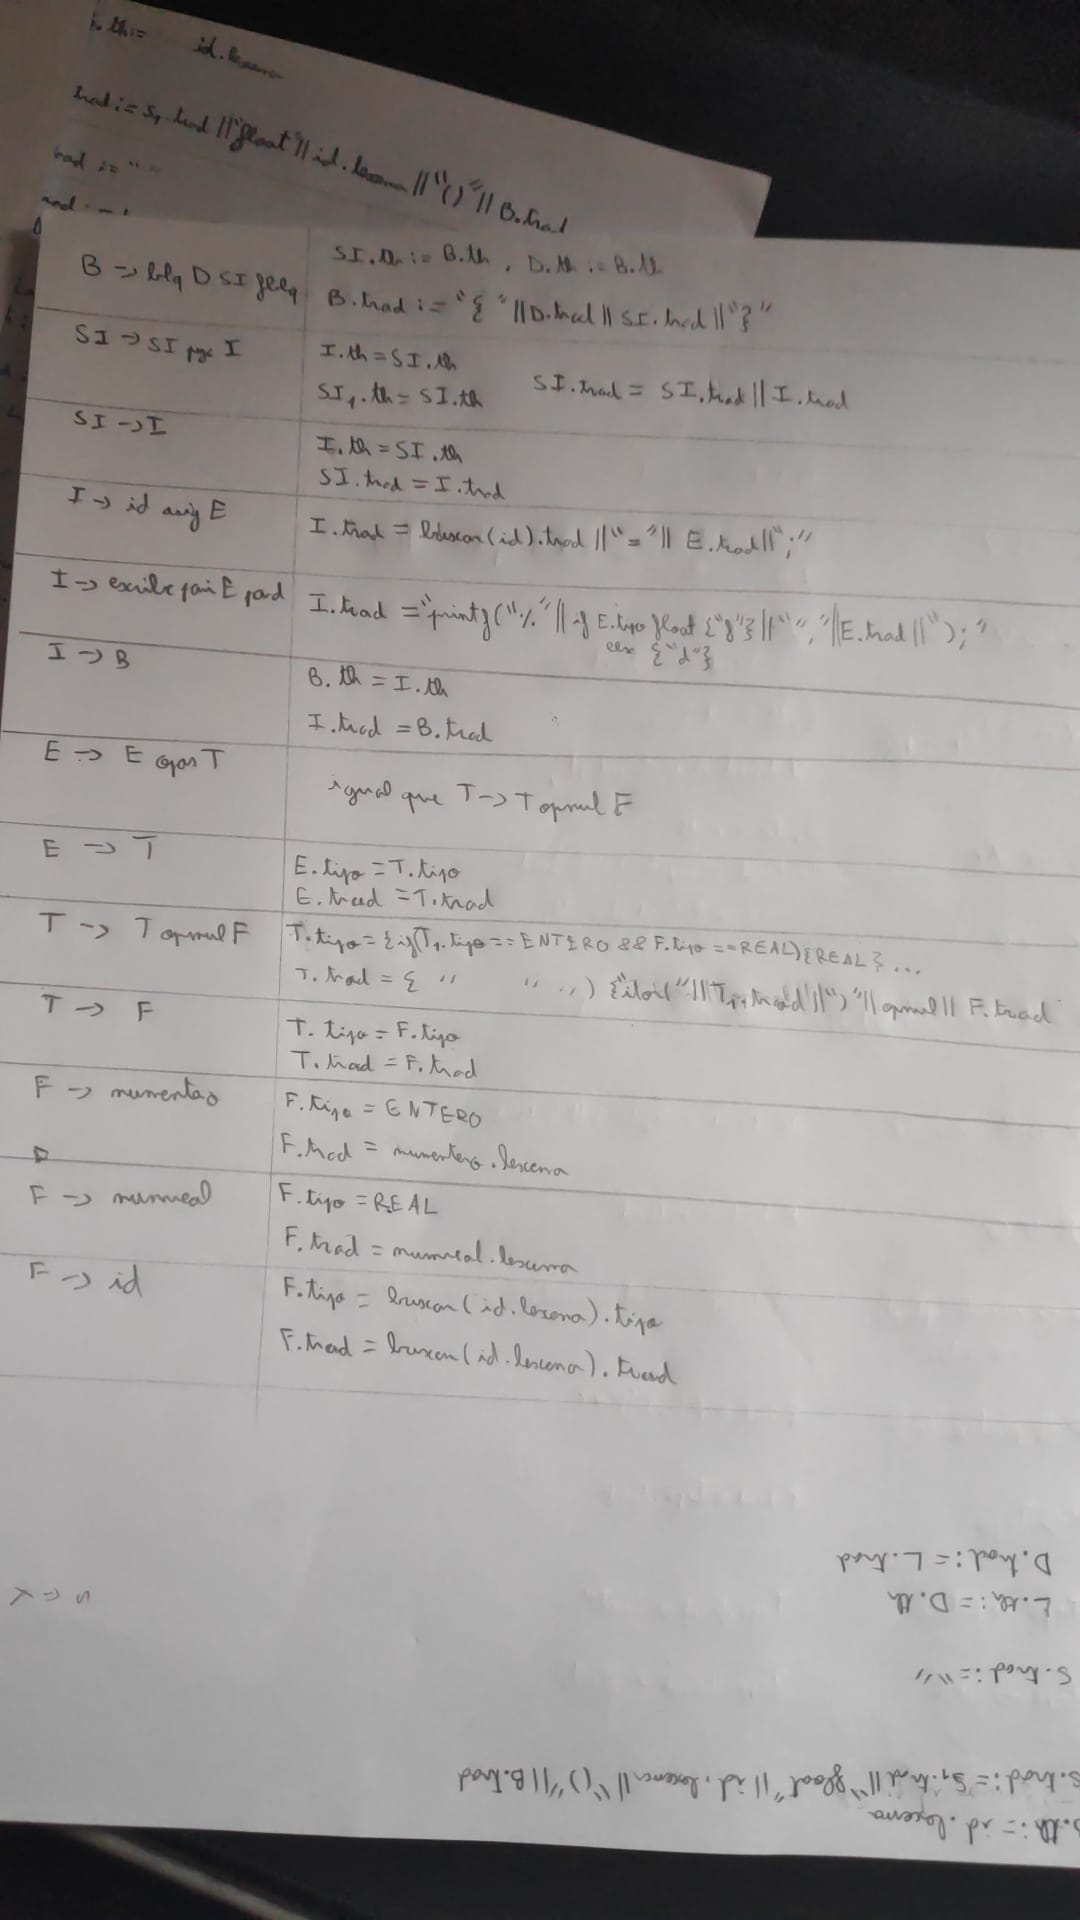 id.lexema
trad := S₁.trad || "float" || id.lexema || "()" || B.trad
trad := ""
B -> blq D SI fblq
SI.th := B.th , D.th := B.th
B.trad := "{" || D.trad || SI.trad || "}"
SI -> SI pyc I
I.th = SI.th
SI₁.th = SI.th SI.trad = SI.trad || I.trad
SI -> I
I.th = SI.th
SI.trad = I.trad
I -> id asig E
I.trad = buscar(id).trad || "=" || E.trad || ";"
I -> escribe pari E pard
I.trad = "printf("%" || if E.tipo float {"g"} || "", " || E.trad || ");"
{"d"}
I -> B
B.th = I.th
I.trad = B.trad
E -> E opas T
igual que T -> T opmul F
E -> T
E.tipo = T.tipo
E.trad = T.trad
T -> T opmul F
T.tipo = {if(T₁.tipo == ENTERO && F.tipo == REAL){REAL} ...
T.trad = { " " ") {"itor(" || T₁.trad || ")" || opmul || F.trad
T -> F
T.tipo = F.tipo
T.trad = F.trad
F -> numentero
F.tipo = ENTERO
F.trad = numentero.lexema
F -> numreal
F.tipo = REAL
F.trad = numreal.lexema
F -> id
F.tipo = buscar(id.lexema).tipo
F.trad = buscar(id.lexema).trad
.th := id.lexema
S.trad := S₁.trad || "float" || id.lexema || "()" || B.trad
S.trad := ""
L.th := D.th
D.trad := L.trad